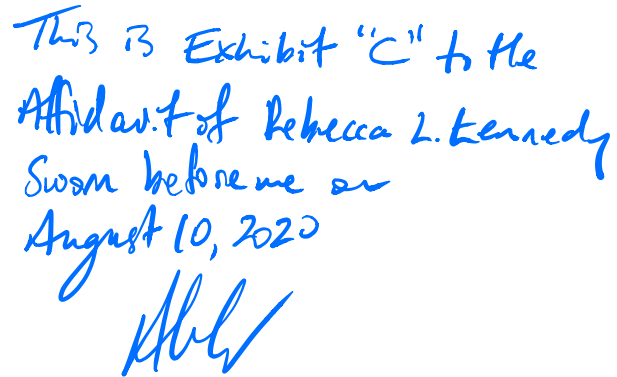 This is Exhibit "C" to the
Affidavit of Rebecca L. Kennedy
Sworn before me on
August 10, 2020